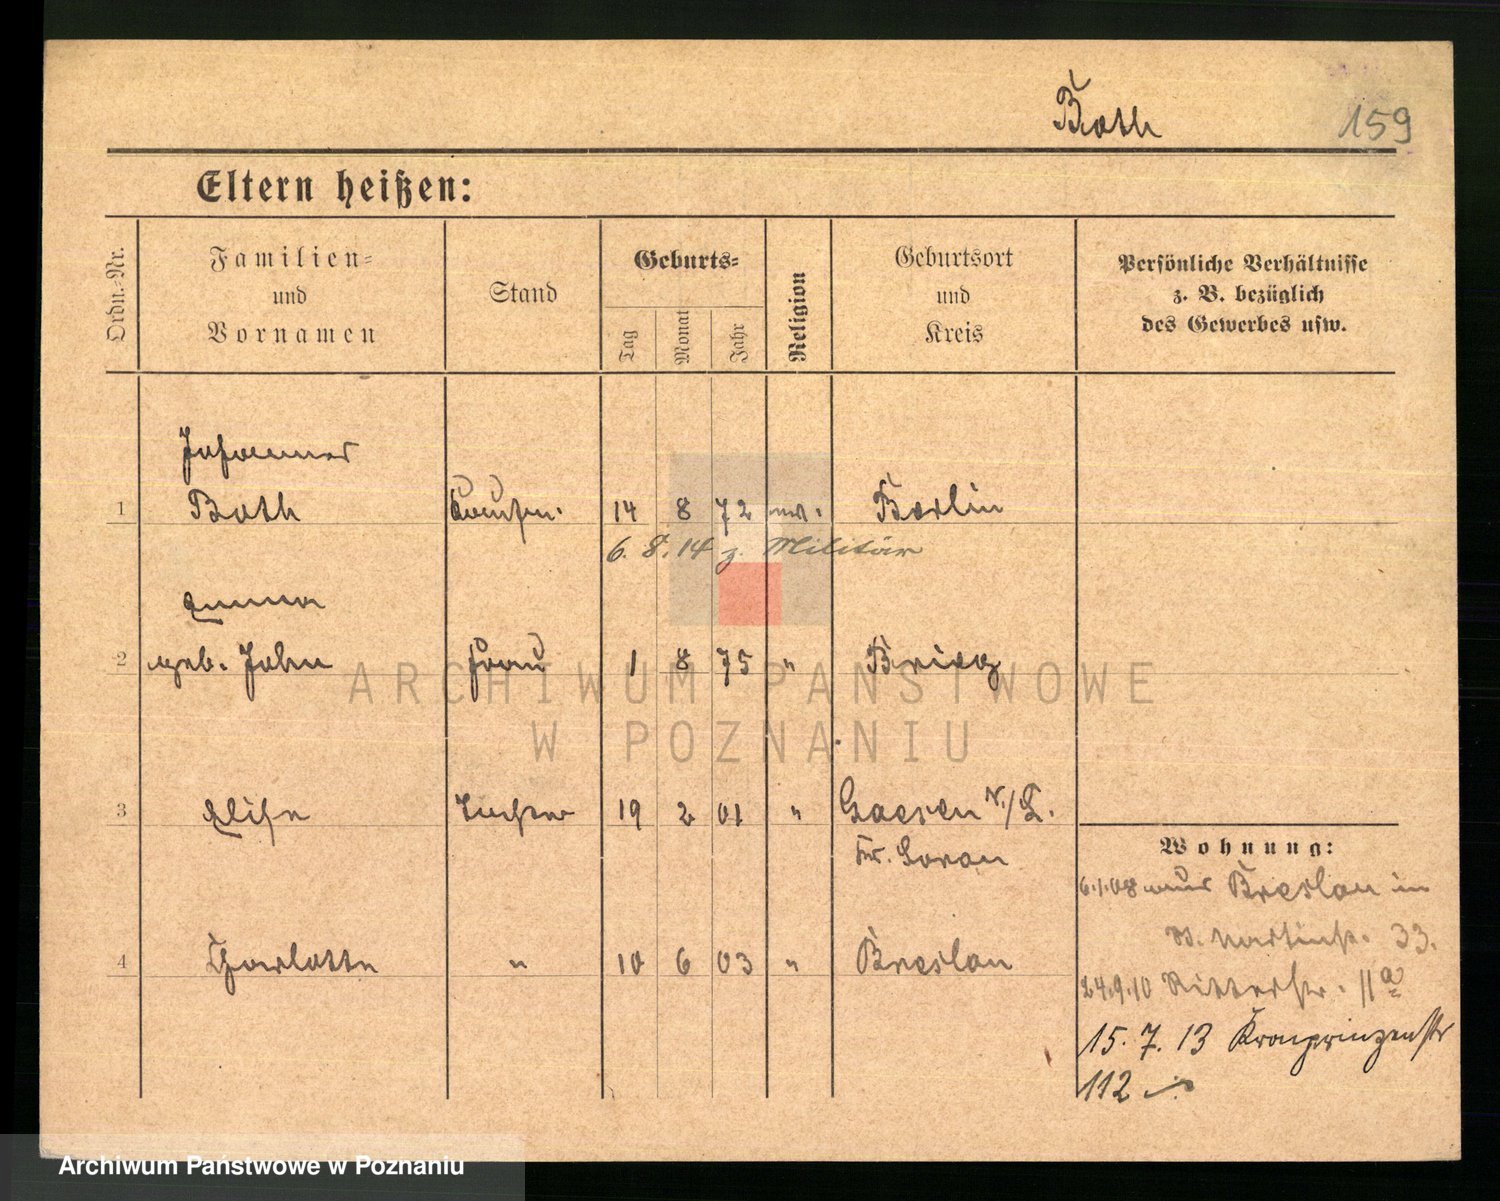 Both
159
Eltern heißen:
Ordn.-Nr.
Familien-
und
Vornamen
Stand
Geburts-
Tag
Monat
Jahr
Religion
Geburtsort
und
Kreis
Persönliche Verhältnisse
z. B. bezüglich
des Gewerbes usw.
Johannes
1 Both Kaufm. 14 8 72 Berlin
6. 8. 14 z. Militär
Emma
2 geb. Jahn Frau 1 8 75 " Brieg
3 Elise Tochter 19 2 01 "
Kr. Sorau
Wohnung:
6.1.08 aus Breslau in
St. Martinstr. 33.
4 Charlotte " 10 6 03 " Breslau
24.9.10 Ritterstr. 11a
15. 7. 13 Kronprinzenstr
112
ARCHIWUM PAŃSTWOWE
W POZNANIU
Archiwum Państwowe w Poznaniu